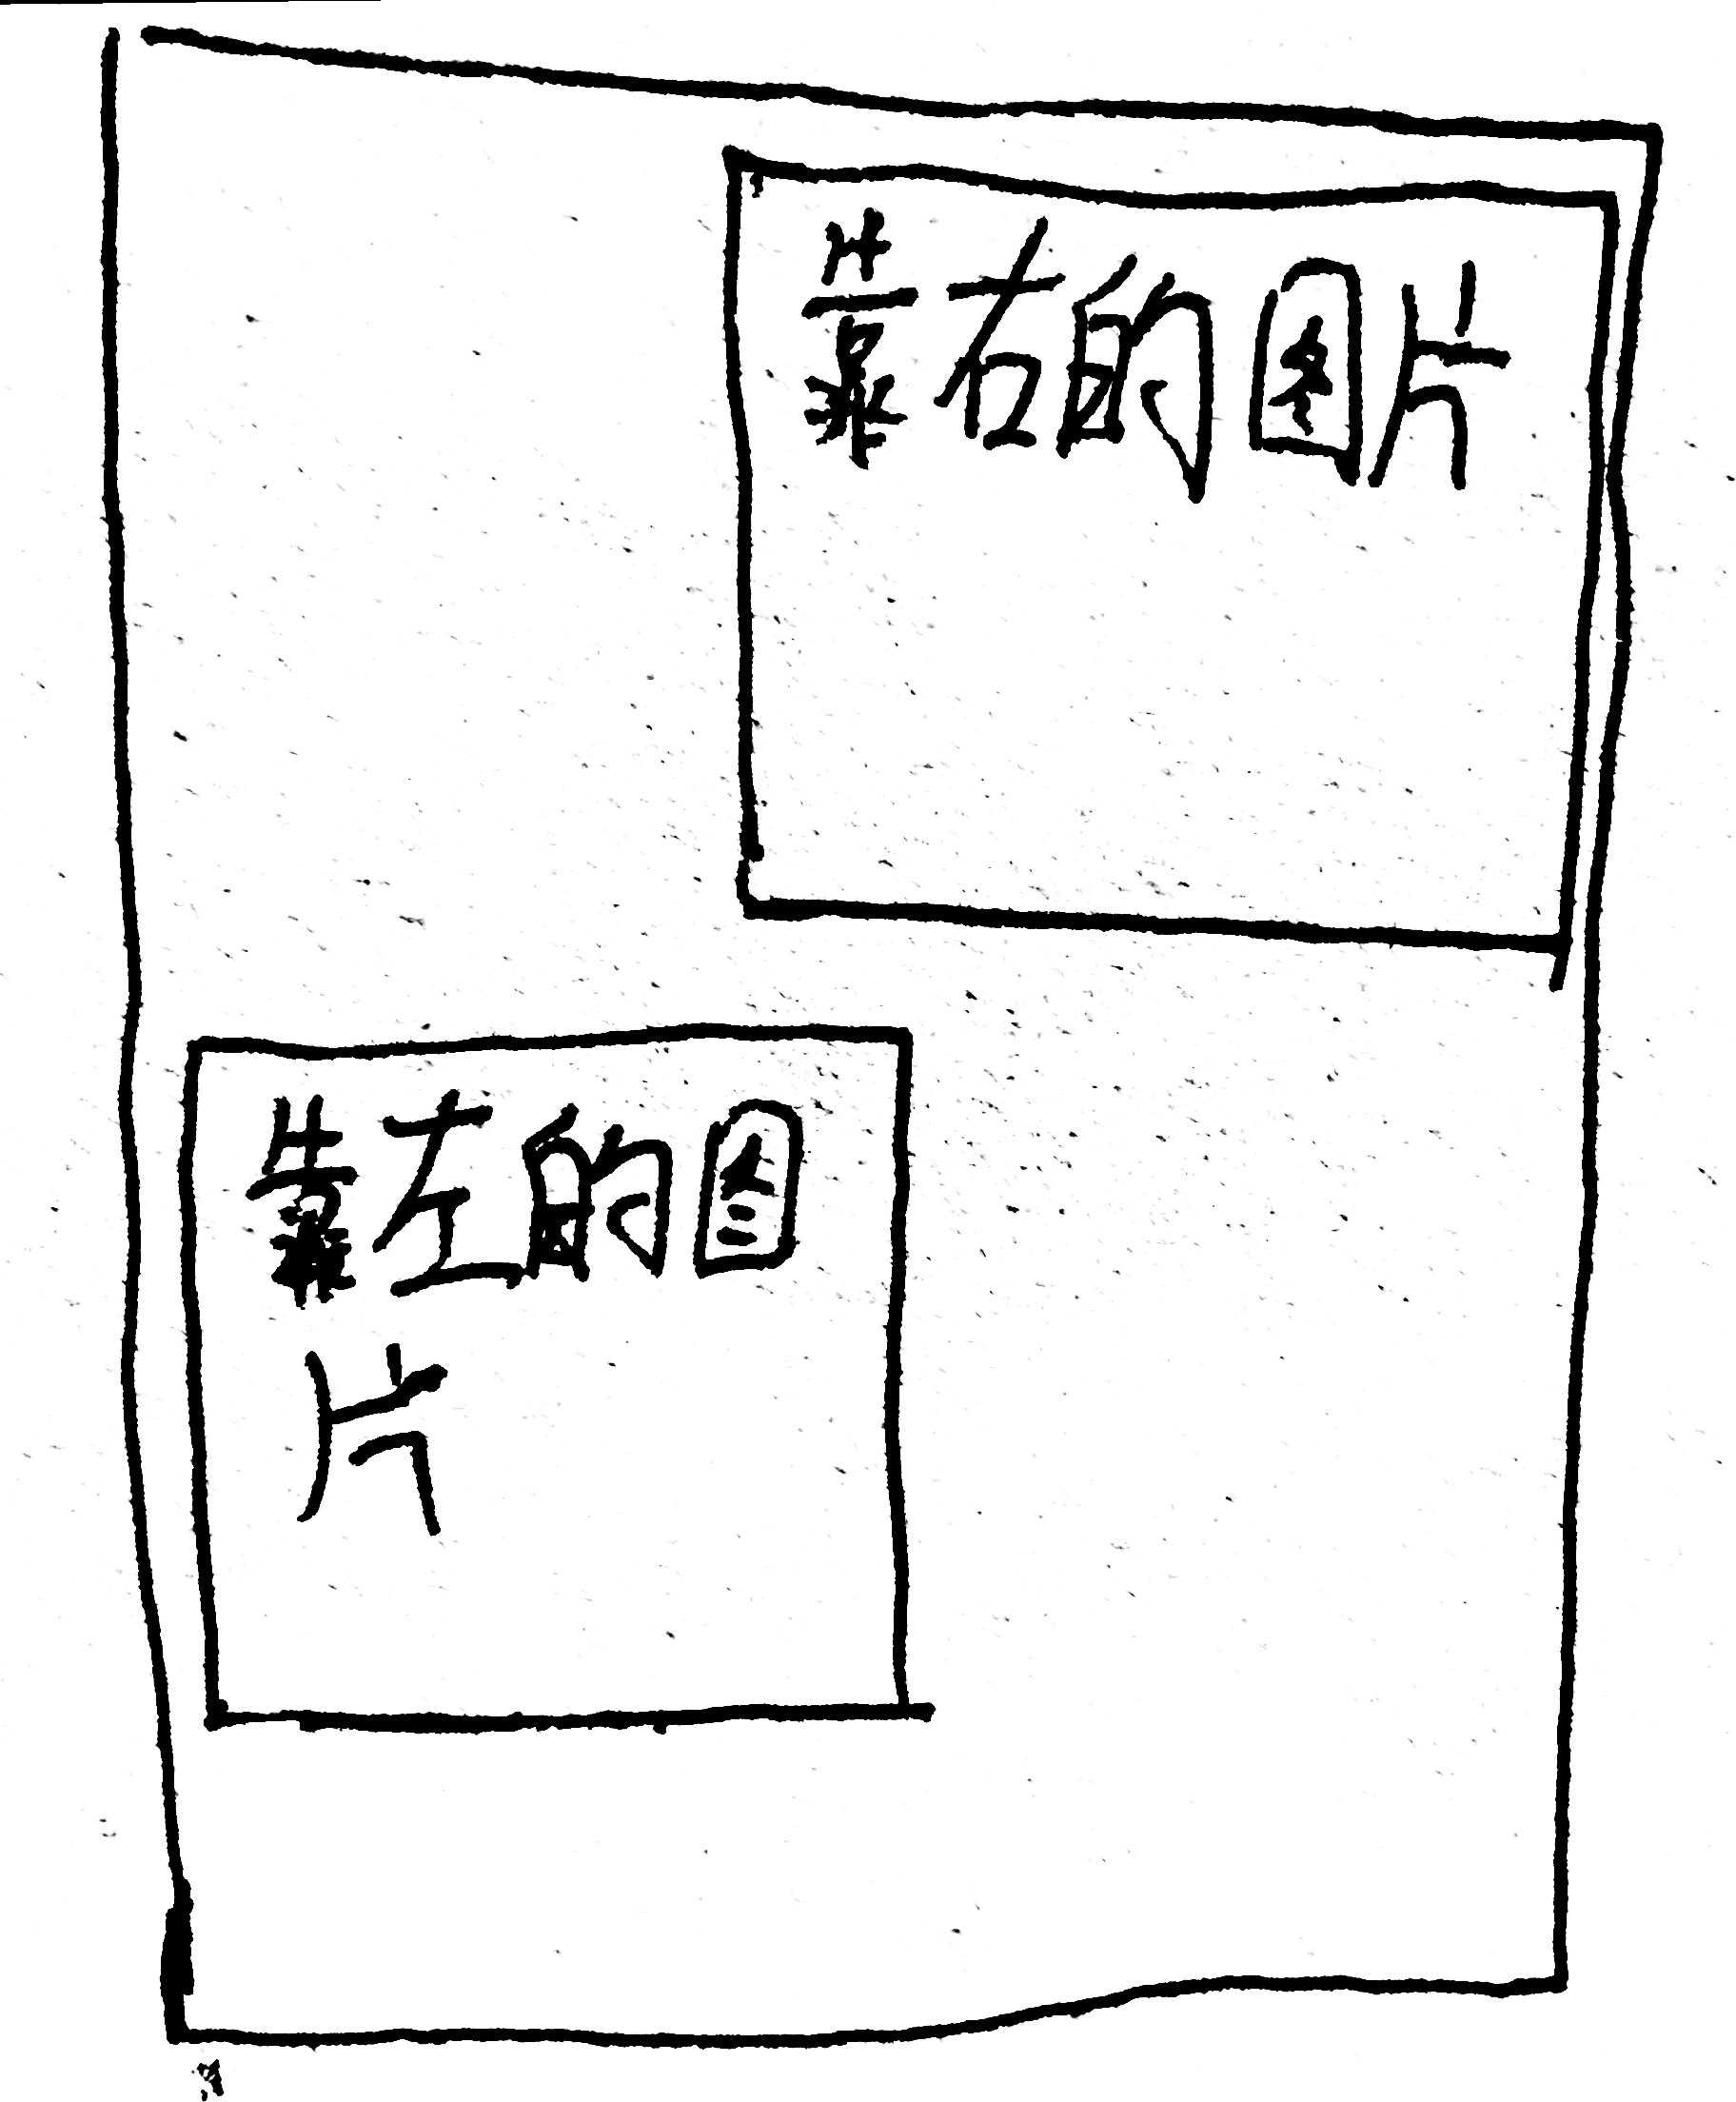 靠右的图片
靠左的图
片